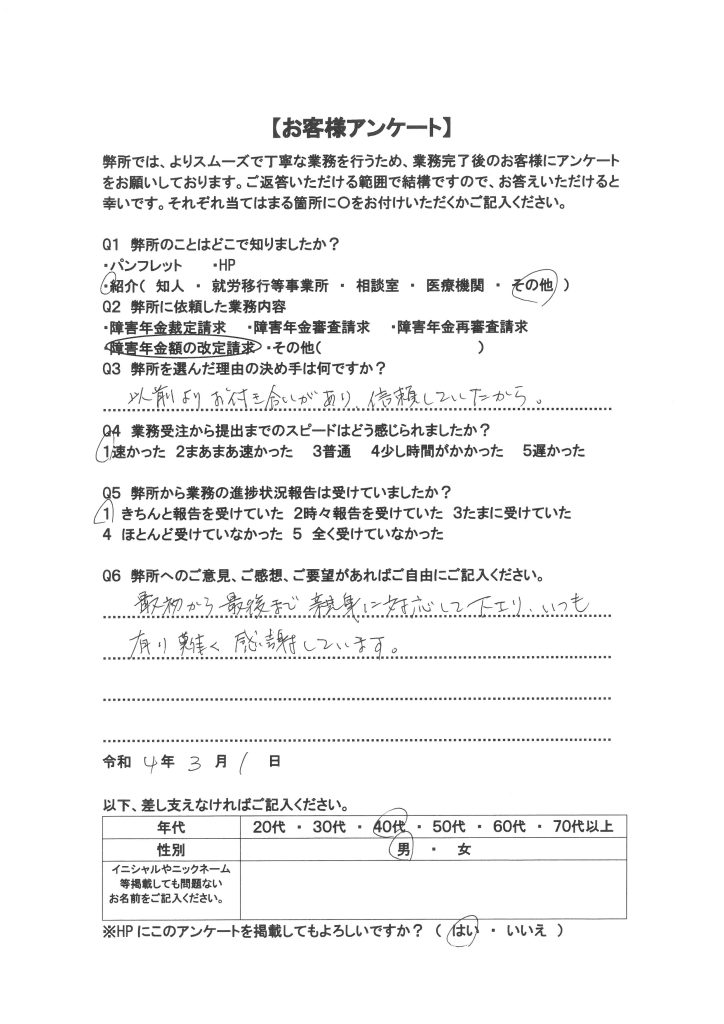 【お客様アンケート】
弊所では、よりスムーズで丁寧な業務を行うため、業務完了後のお客様にアンケート
をお願いしております。ご返答いただける範囲で結構ですので、お答えいただけると
幸いです。それぞれ当てはまる箇所に〇をお付けいただくかご記入ください。
Q1 弊所のことはどこで知りましたか？
・パンフレット ・HP
・紹介（ 知人 ・ 就労移行等事業所 ・ 相談室 ・ 医療機関 ・ その他 ）
Q2 弊所に依頼した業務内容
・障害年金裁定請求 ・障害年金審査請求 ・障害年金再審査請求
・障害年金額の改定請求 ・その他（ ）
Q3 弊所を選んだ理由の決め手は何ですか？
以前よりお付き合いがあり、信頼していたから。
Q4 業務受注から提出までのスピードはどう感じられましたか？
1速かった 2まあまあ速かった 3普通 4少し時間がかかった 5遅かった
Q5 弊所から業務の進捗状況報告は受けていましたか？
1 きちんと報告を受けていた 2時々報告を受けていた 3たまに受けていた
4 ほとんど受けていなかった 5 全く受けていなかった
Q6 弊所へのご意見、ご感想、ご要望があればご自由にご記入ください。
最初から最後まで親身に対応して下エリ、いつも
有り難く感謝しています。
令和 4年 3 月 1 日
以下、差し支えなければご記入ください。
年代 20代 ・ 30代 ・ 40代 ・ 50代 ・ 60代 ・ 70代以上
性別 男 ・ 女
イニシャルやニックネーム
等掲載しても問題ない
お名前をご記入ください。
※HPにこのアンケートを掲載してもよろしいですか？ （ はい ・ いいえ ）